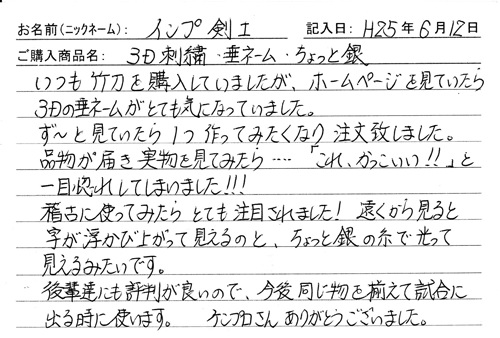 お名前(ニックネーム): インプ剣士 記入日: H25年6月12日
ご購入商品名: 3D刺繍・垂ネーム・ちょっと銀
いつも竹刀を購入していましたが、ホームページを見ていたら
3Dの垂ネームがとても気になっていました。
ず〜と見ていたら1つ作ってみたくなり注文致しました。
品物が届き実物を見てみたら…‥「これ、かっこいい!!」と
一目惚れしてしまいました!!!
稽古に使ってみたらとても注目されました! 遠くから見ると
字が浮かび上がって見えるのと、ちょっと銀の糸で光って
見えるみたいです。
後輩達にも評判が良いので、今後同じ物を揃えて試合に
出る時に使います。 ケンプロさんありがとうございました。